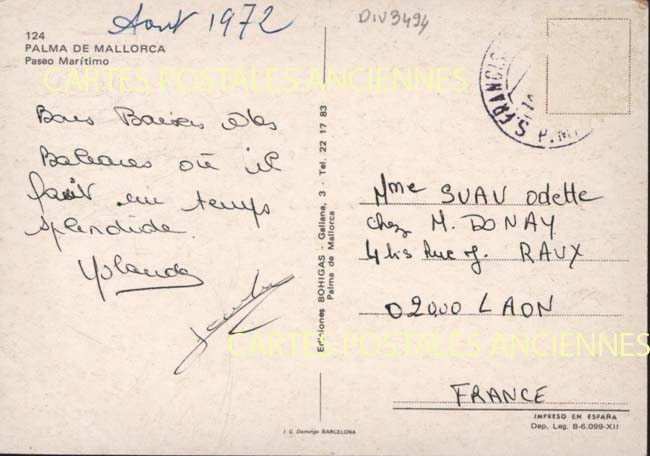 Aout 1972
DIV3494
124
PALMA DE MALLORCA
Paseo Marítimo
CARTES POSTALES ANCIENNES
Bons Baisers des
Baléares où il
fait un temps
splendide.
Yolande
Ediciones BOHIGAS - Galiana, 3 - Tel. 22 17 83
Palma de Mallorca
S. FRANCIS
P. M.
Mme SUAV Odette
chez M. DONAY
4 bis Rue J. RAUX
02000 LAON
CARTES POSTALES ANCIENNES
FRANCE
IMPRESO EN ESPAÑA
Dep. Leg. B-6.099-XII
I. G. Domingo BARCELONA